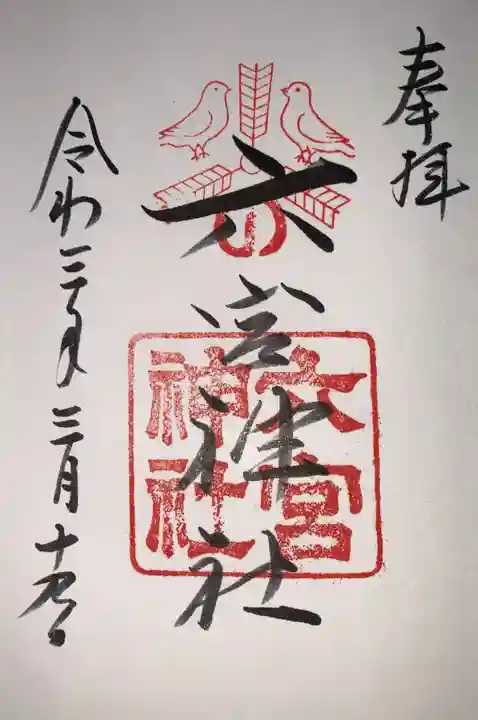 奉拝
六宮神社
六宮
神社
令和三年三月十日